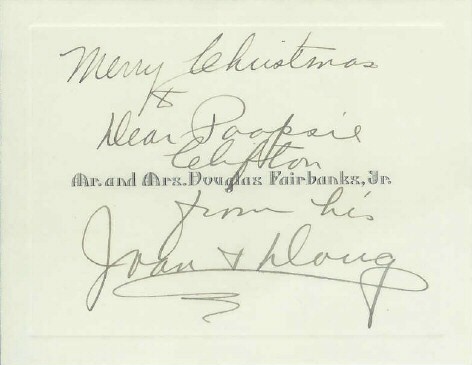 Merry Christmas
to
Dear Poopsie
Clifton
Mr. and Mrs. Douglas Fairbanks, Jr.
from his
Joan + Doug